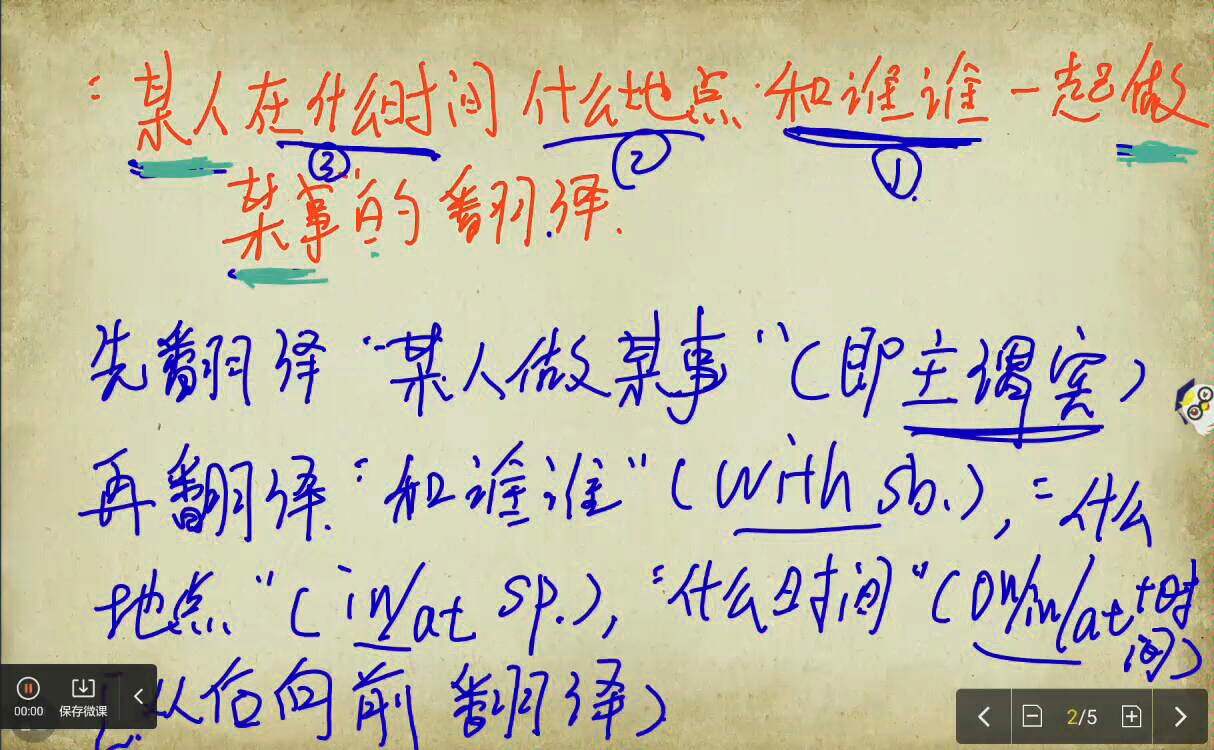 “某人在什么时间 什么地点 和谁谁一起做
③ ② ①
某事”的翻译.
先翻译“某人做某事”(即主谓宾)
再翻译“和谁谁”(with sb.), “什么
地点”(in/at sp.), “什么时间”(on/in/at+时
间)
(从后向前翻译)
00:00 保存微课
2/5